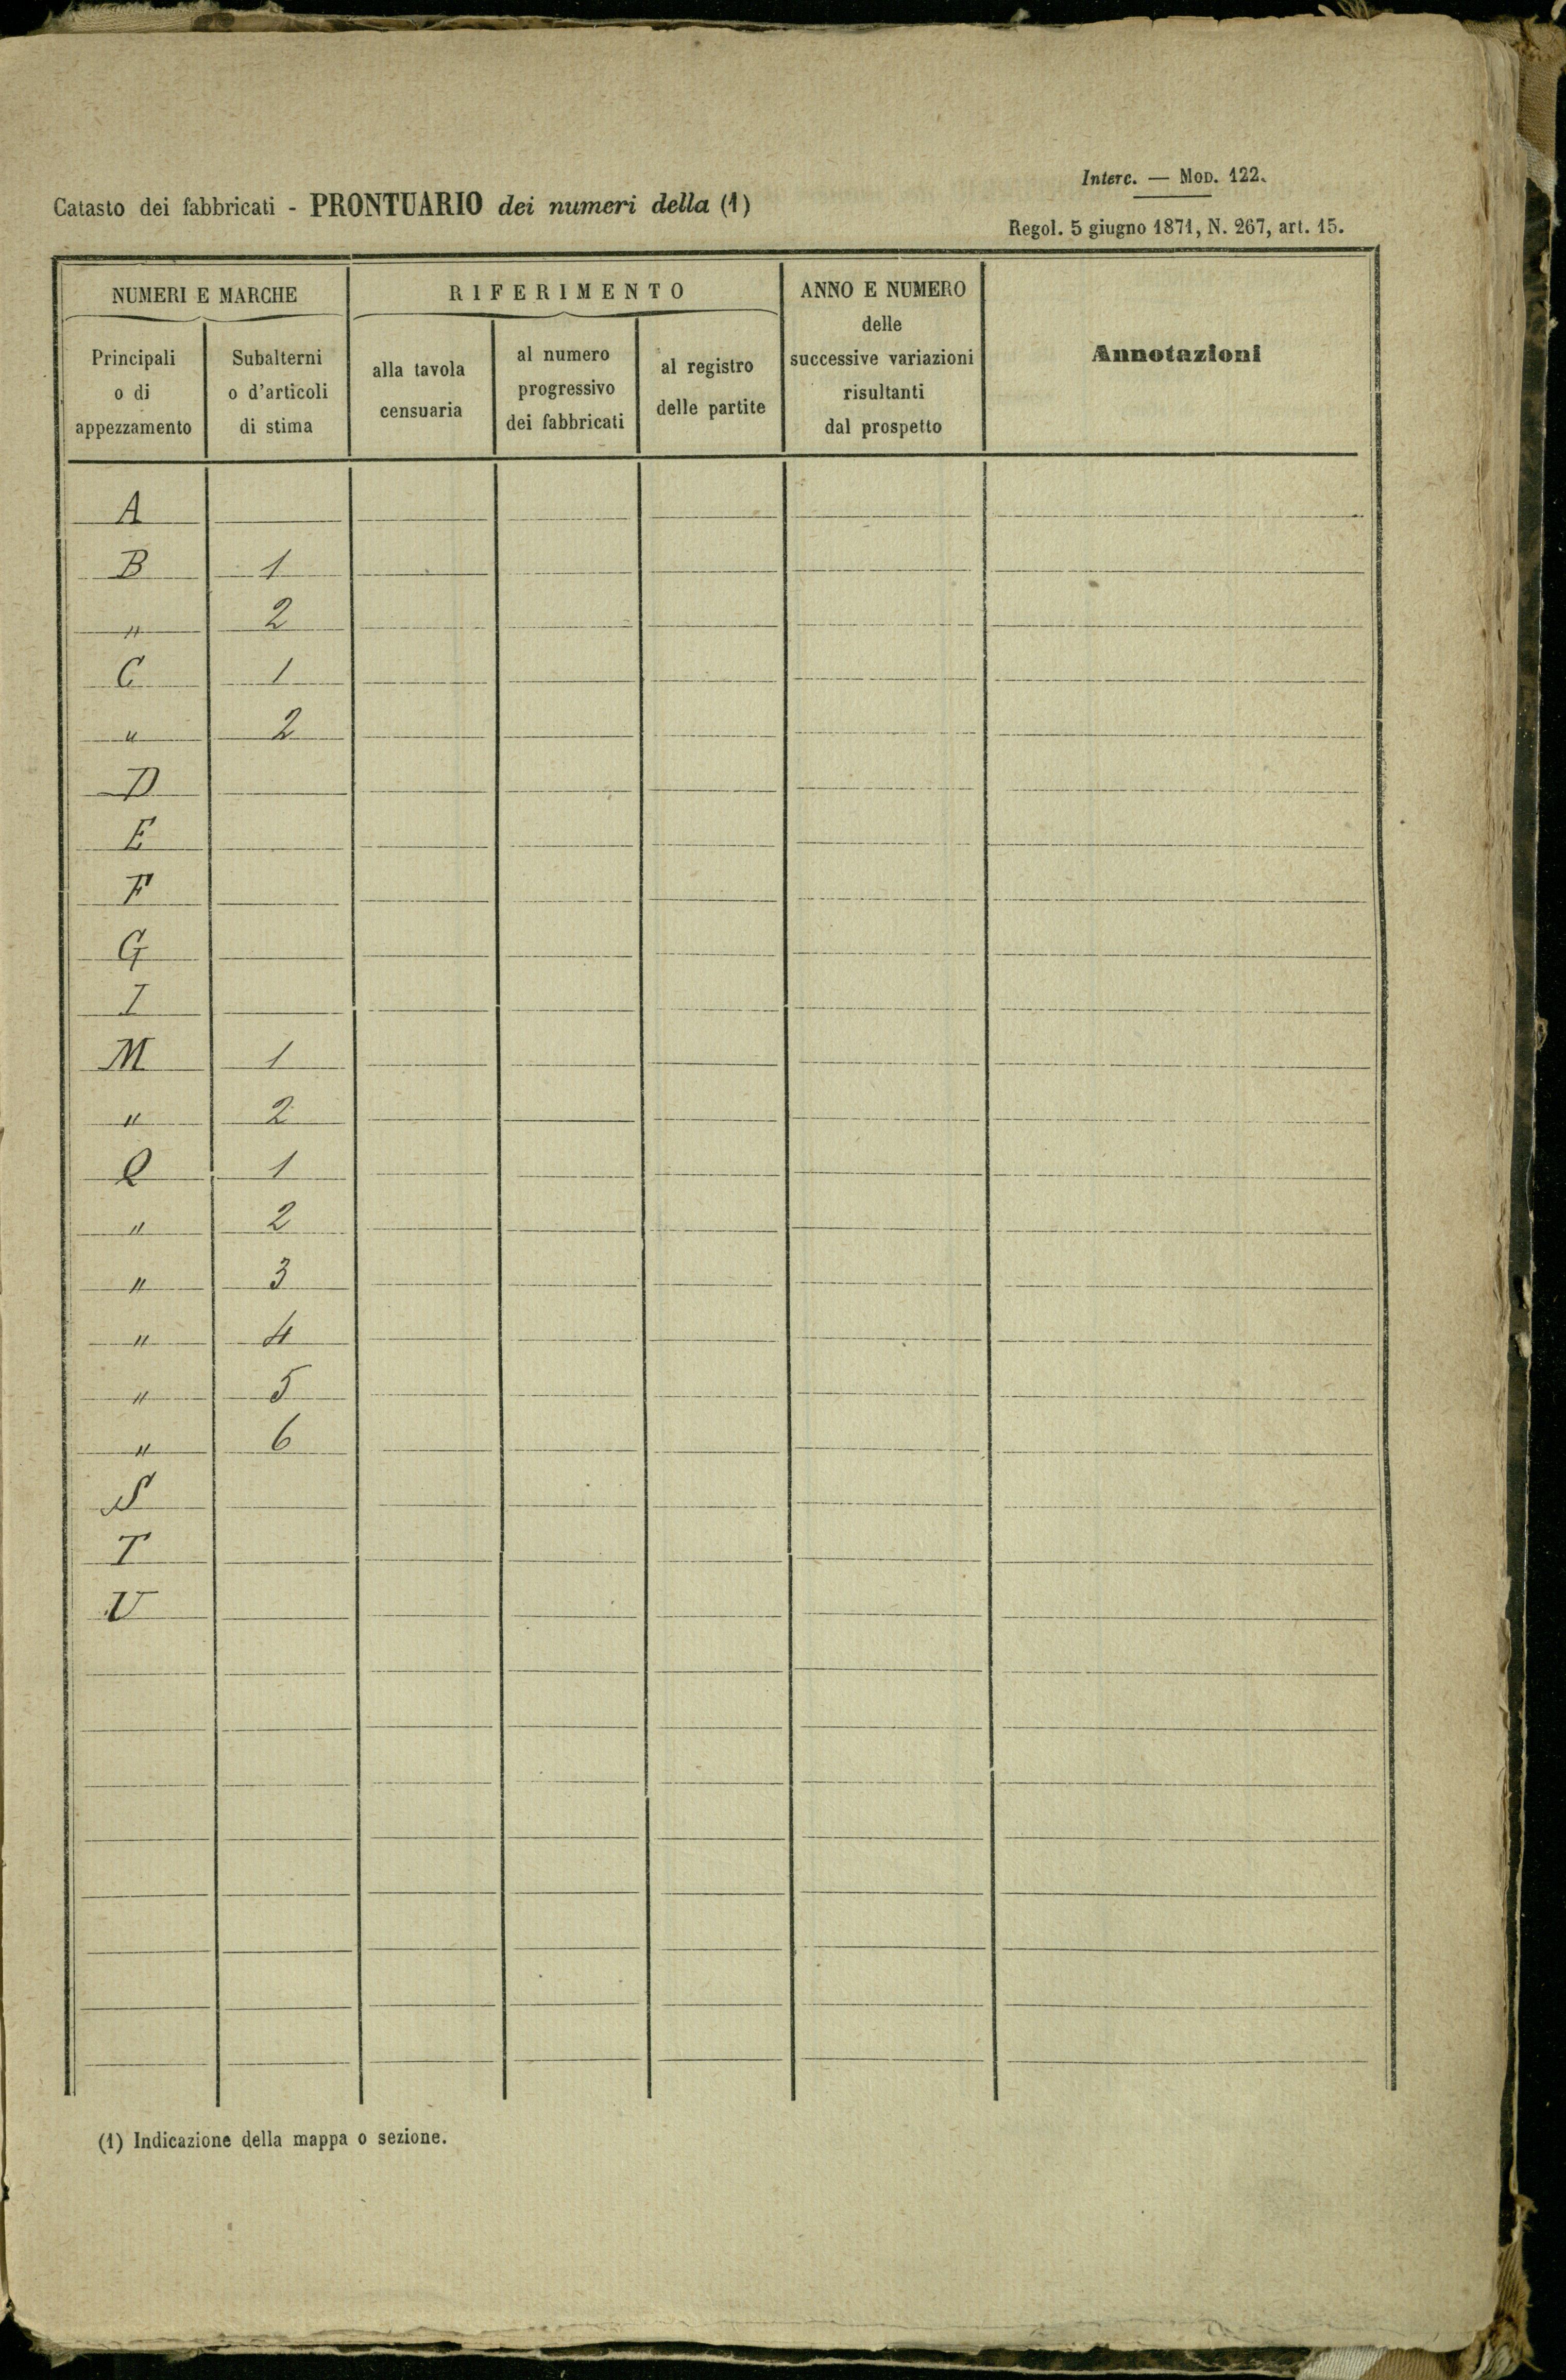 Interc. — MOD. 122.
Catasto dei fabbricati - PRONTUARIO dei numeri della (1)
Regol. 5 giugno 1871, N. 267, art. 15.
NUMERI E MARCHE
Principali
o di
appezzamento
Subalterni
o d'articoli
di stima
RIFERIMENTO
alla tavola
censuaria
al numero
progressivo
dei fabbricati
al registro
delle partite
ANNO E NUMERO
delle
successive variazioni
risultanti
dal prospetto
Annotazioni
A
B 1
" 2
C 1
" 2
D
E
F
G
I
M 1
" 2
Q 1
" 2
" 3
" 4
" 5
" 6
S
T
U
(1) Indicazione della mappa o sezione.